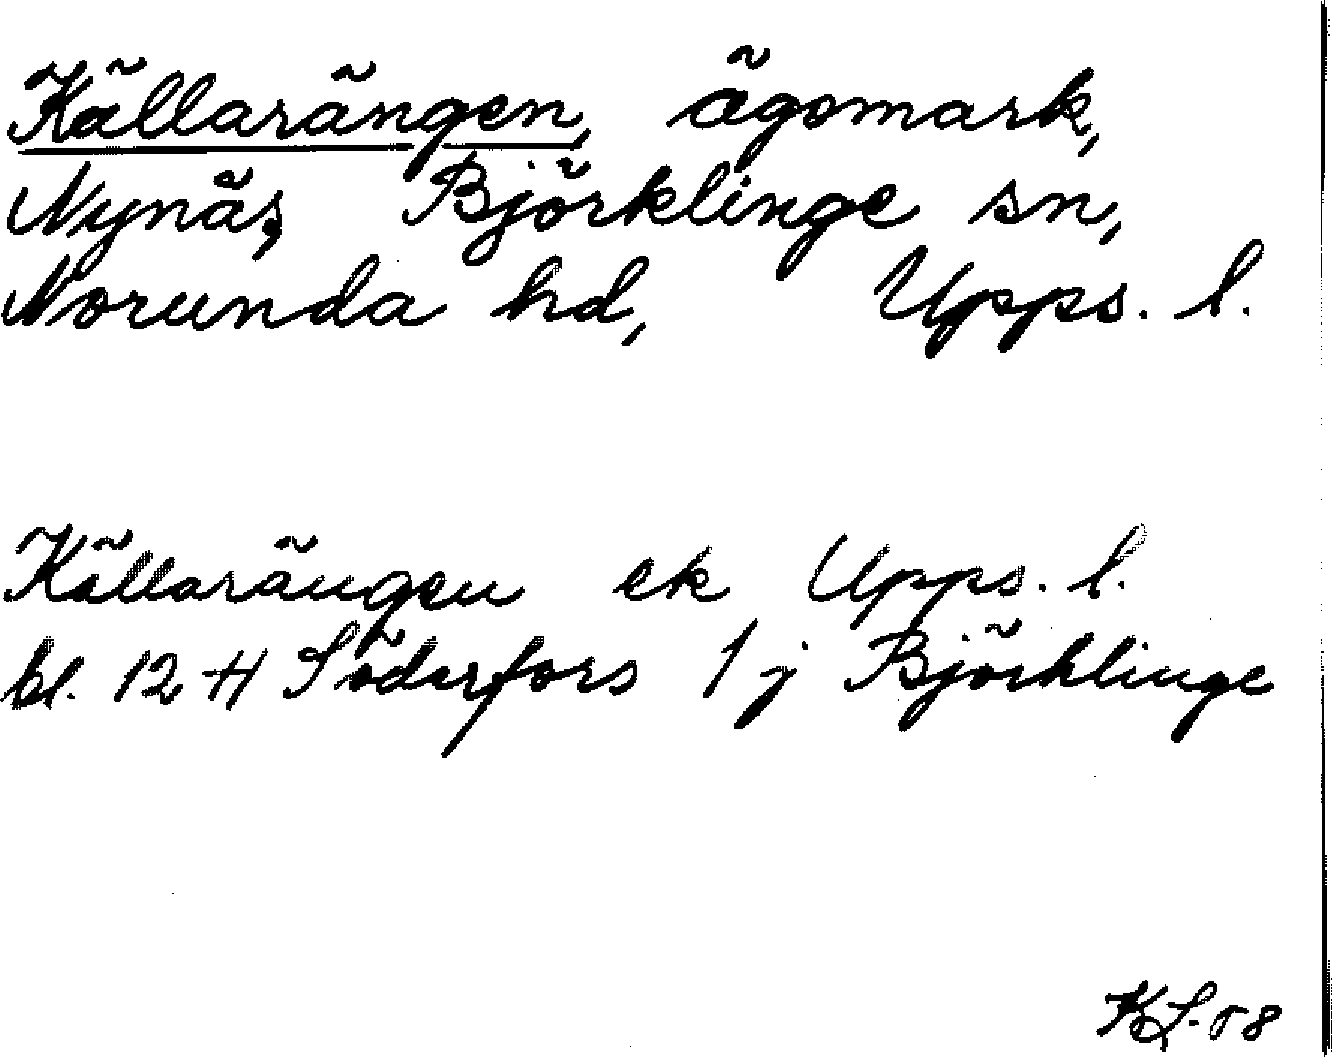 Källarängen, ägomark,
Nynäs, Björklinge sn,
Norunda hd, Upps. l.
Källarängen ek Upps. l.
bl. 12 H Söderfors 1 j Björklinge
KL. 58